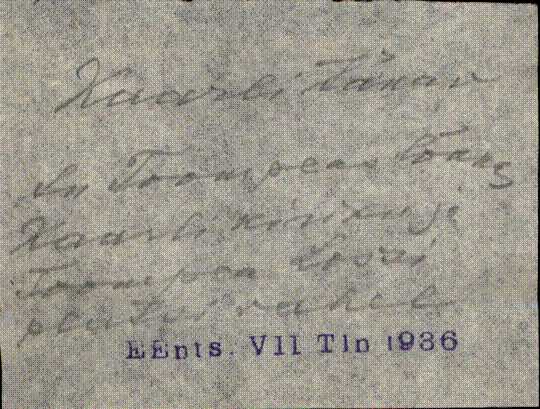 Kaarli tänav
Sn Toompea tänav
Kaarli kiriku ja
Toompea lossi
platsi vahel
EEnts. VII Tln 1936